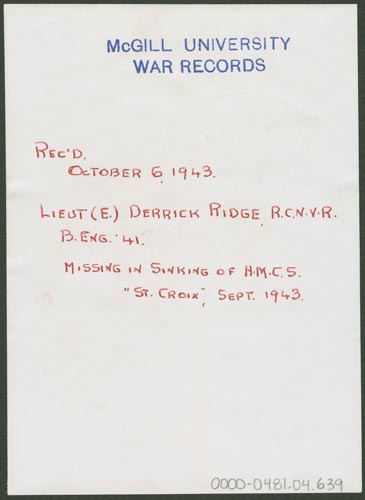 McGILL UNIVERSITY
WAR RECORDS
REC'D.
OCTOBER 6, 1943.
LIEUT (E.) DERRICK RIDGE, R.C.N.V.R.
B. ENG. '41.
MISSING IN SINKING OF H.M.C.S.
"ST. CROIX", SEPT. 1943.
0000-0481.04.639